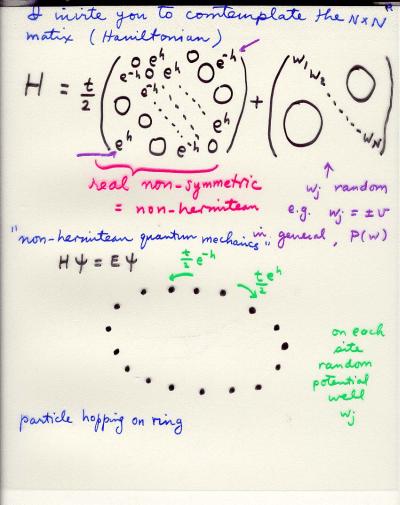 I invite you to comtemplate the N×N
matix (Hamiltonian)
H = t/2 ( 0 e^h 0 e^-h
e^-h 0 e^h 0
e^-h
e^h
e^h 0 e^-h 0 ) + ( w1 w2 0
0 wN )
real non-symmetric
= non-hermitean
wj random
e.g. wj = ±v
in general, P(w)
"non-hermitean quantum mechanics"
Hψ = Eψ
t/2 e^-h
t/2 e^h
on each
site
random
potential
well
wj
particle hopping on ring